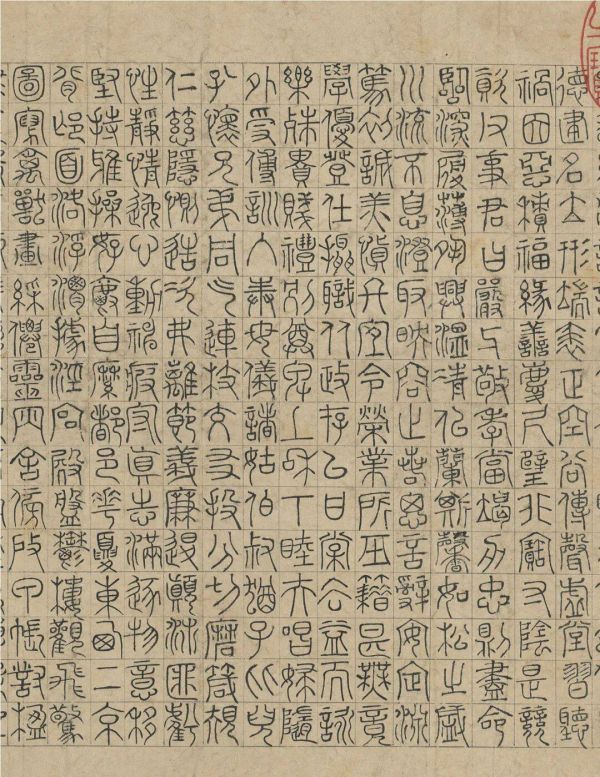 德建名立形端表正空谷傳聲虛堂習聽
禍因惡積福緣善慶尺璧非寶寸陰是競
資父事君曰嚴與敬孝當竭力忠則盡命
臨深履薄夙興溫清似蘭斯馨如松之盛
川流不息澄取映容止若思言辭安定淵
篤初誠美慎終宜令榮業所基籍甚無竟
學優登仕攝職從政存以甘棠去益而詠
樂殊貴賤禮別尊卑上和下睦夫唱婦隨
外受傅訓入奉母儀諸姑伯叔猶子比兒
孔懷兄弟同氣連枝交友投分切磨箴規
仁慈隱惻造次弗離節義廉退顛沛匪虧
性靜情逸心動神疲守真志滿逐物意移
堅持雅操好爵自縻都邑華夏東西二京
背邙面洛浮渭據涇宮殿盤鬱樓觀飛驚
圖寫禽獸畫綵僊靈丙舍傍啟甲帳對楹